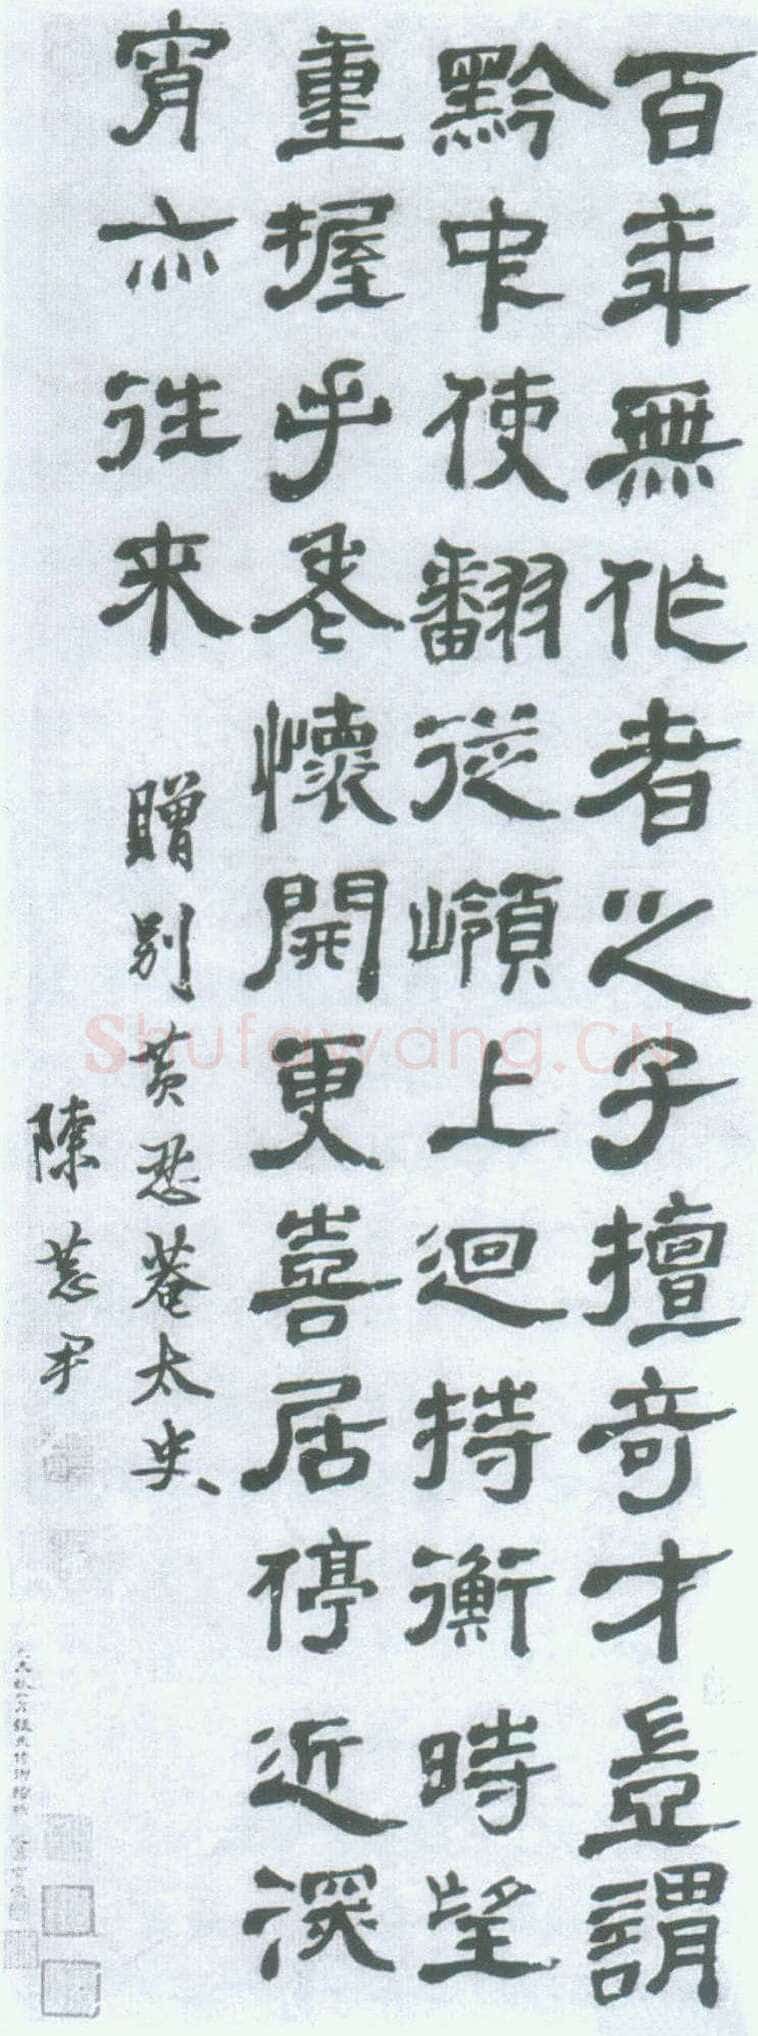 百年無作者之子擅奇才豈謂
黔中使翻從嶺上迴持衡時望
重握手卷懷開更喜居停近深
宵亦往来
贈別黄忍菴太史
陳恭尹
Shufawang.CN